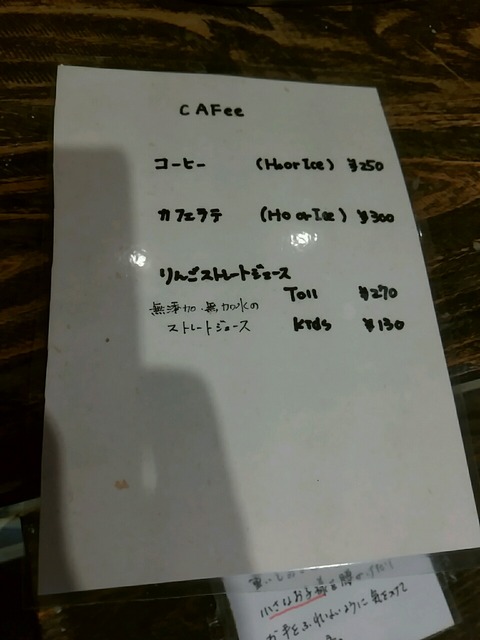 CAFee
コーヒー (Ho or Ice) ¥250
カフェラテ (Ho or Ice) ¥300
りんごストレートジュース
Toll ¥270
無添加.無加水の
ストレートジュース Krds ¥130
小さなお子様
お手をふれないように気をつけて